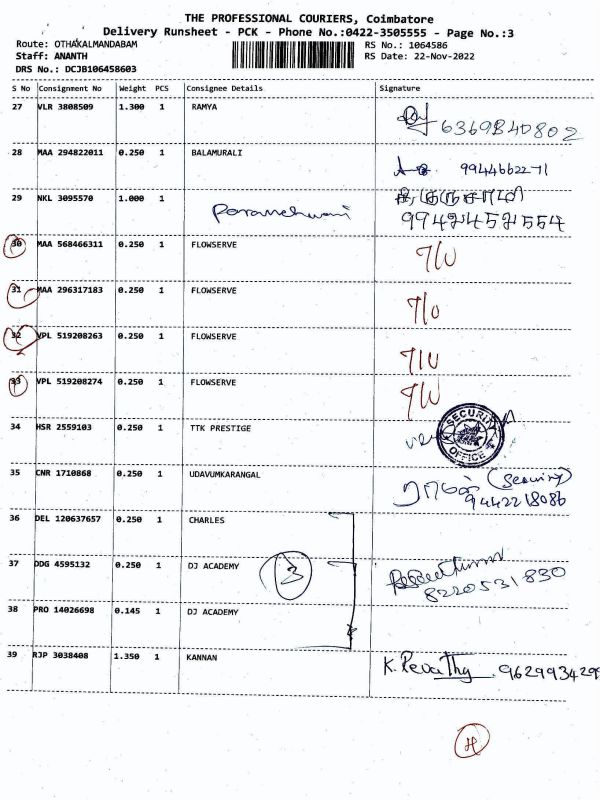 THE PROFESSIONAL COURIERS, Coimbatore
Delivery Runsheet - PCK - Phone No.:0422-3505555 - Page No.:3
Route: OTHAKALMANDABAM RS No.: 1064586
Staff: ANANTH RS Date: 22-Nov-2022
DRS No.: DCJB106458603
S No Consignment No Weight PCS Consignee Details Signature
27 VLR 3808509 1.300 1 RAMYA
6369840802
28 MAA 294822011 0.250 1 BALAMURALI
9944662271
29 NKL 3095570 1.000 1
Parameshwari 9942452554
30 MAA 568466311 0.250 1 FLOWSERVE
31 MAA 296317183 0.250 1 FLOWSERVE
32 VPL 519208263 0.250 1 FLOWSERVE
33 VPL 519208274 0.250 1 FLOWSERVE
34 HSR 2559103 0.250 1 TTK PRESTIGE
SECURITY OFFICE
35 CNR 1710868 0.250 1 UDAVUMKARANGAL
(Security)
9442218086
36 DEL 120637657 0.250 1 CHARLES
37 DDG 4595132 0.250 1 DJ ACADEMY
3
8220531830
38 PRO 14026698 0.145 1 DJ ACADEMY
39 RJP 3038408 1.350 1 KANNAN
K. Revathy 962993429